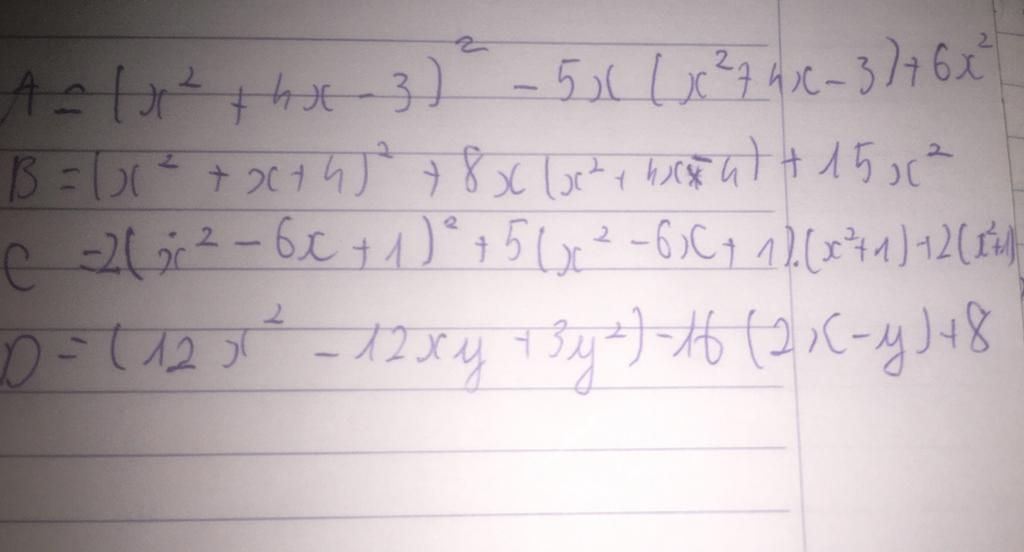 A = (x² + 4x - 3)² - 5x (x² + 4x - 3) + 6x²
B = (x² + x + 4)² + 8x (x² + 4x - 4) + 15x²
C = 2(x² - 6x + 1)² + 5(x² - 6x + 1).(x² + 1) + 2(x² + 1)
D = (12x² - 12xy + 3y²) - 16 (2x - y) + 8